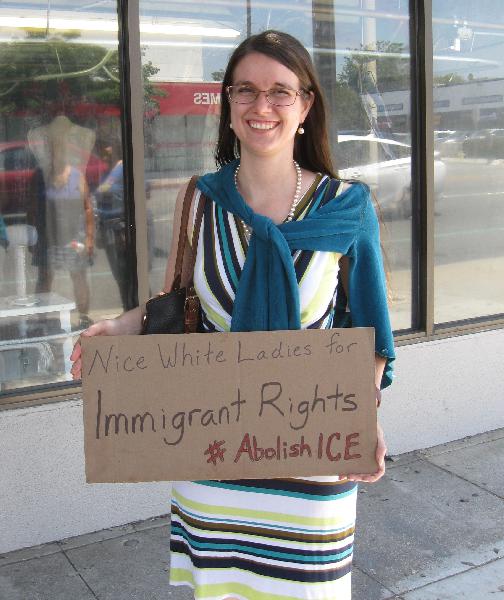 Nice White Ladies for
Immigrant Rights
# Abolish ICE